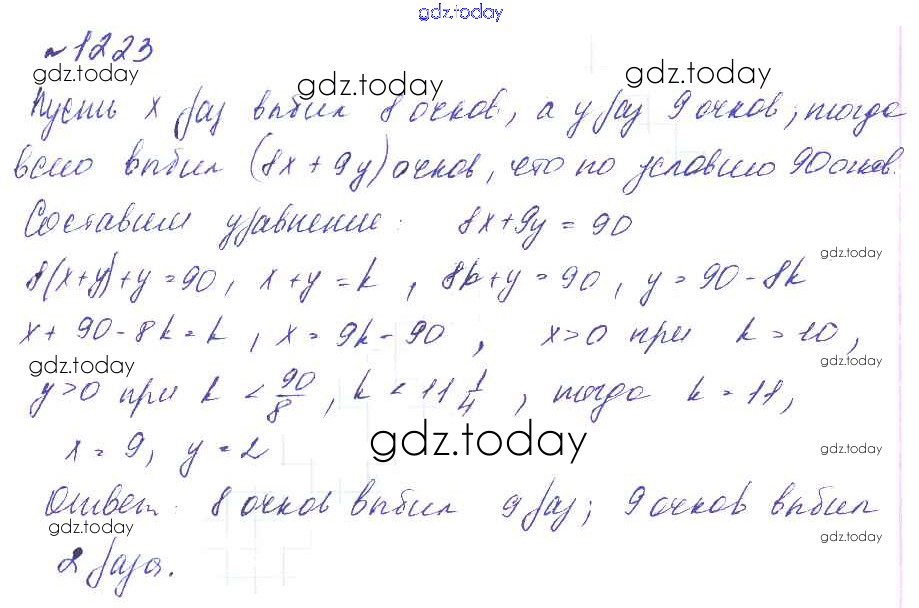 gdz.today
№ 1223
gdz.today gdz.today gdz.today
Пусть x раз выбил 8 очков, а y раз 9 очков, тогда
всего выбил (8x + 9y) очков, что по условию 90 очков.
Составим уравнение: 8x+9y = 90
gdz.today
8(x+y)+y=90, x+y=k, 8k+y=90, y=90-8k
x+90-8k=k, x=9k-90, x>0 при k=10,
gdz.today gdz.today
y>0 при k < 90/8, k < 11 1/4, тогда k=11,
gdz.today
x=9, y=2
gdz.today
Ответ: 8 очков выбил 9 раз; 9 очков выбил
gdz.today gdz.today
2 раза.